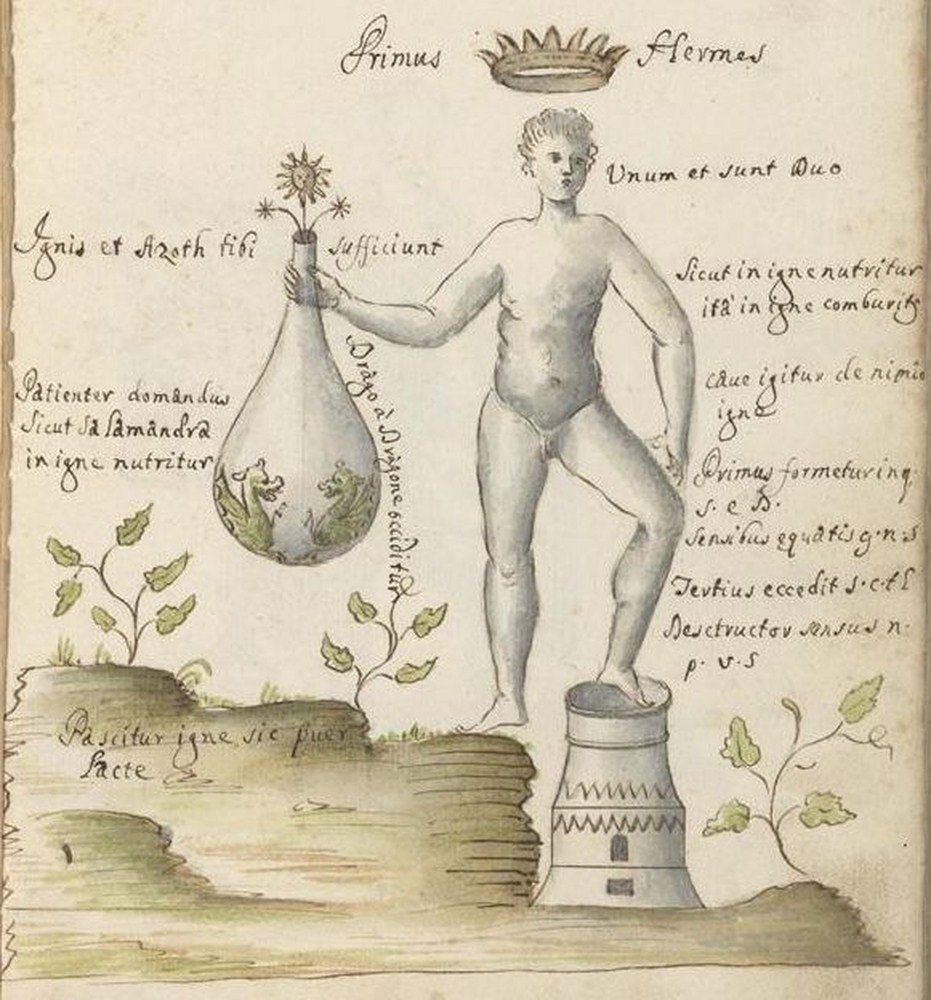 Primus Hermes
Unum et sunt Duo
Ignis et Azoth tibi sufficiunt
Sicut in igne nutritur
ità in igne comburitz
Patienter domandus
sicut Salamandra
in igne nutritur
Drago à Dragone occiditur
caue igitur de nimio
igne
Primus formetur inq.
s. e D.
sensibus equatis g. n. s
Tertius eccedit s. c. t l
Desctructor sensus n.
p. v. s
Pascitur igne sic puer
Lacte